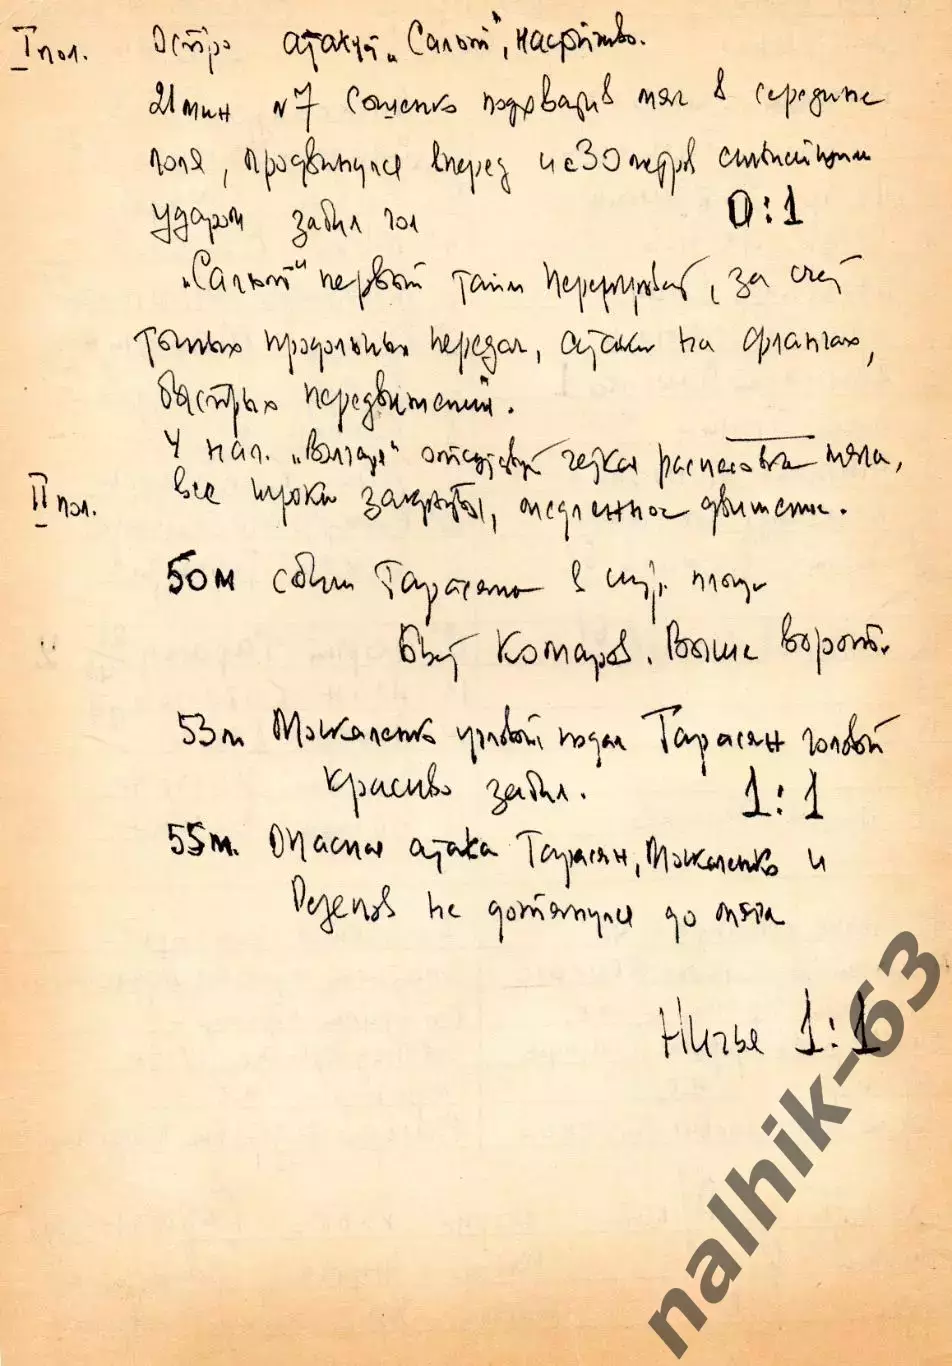 I пол. Остро атакует „Салют", настойчиво.
21 мин №7 Сошенко подхватив мяч в середине
поля, продвинулся вперед и с 30 метров сильнейшим
ударом забил гол 0:1
„Салют" первый тайм переигрывает, за счет
точных продольных передач, атаки на флангах,
быстрых передвижений.
У нап. „Волгаря" отсутствует четкая распасовка мяча,
II пол. все игроки закрыты, медленное движение.
50м сбили Тарасяна в штр. площ
бьёт Комаров. Выше ворот.
53м Можаленко угловой подал Тарасян головой
красиво забил. 1:1
55м. Опасная атака Тарасян, Можаленко и
не дотянулся до мяча
Ничья 1:1
nalhik-63